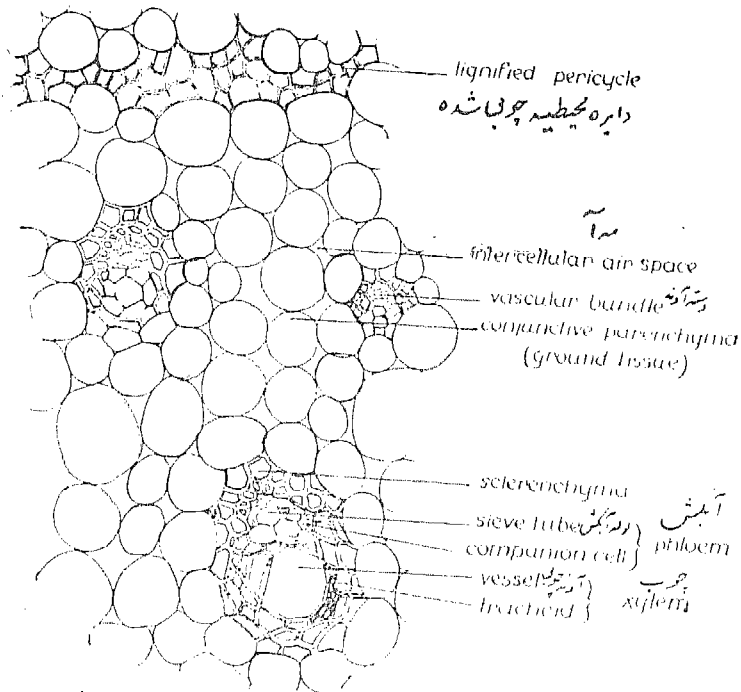 lignified pericycle
دایره محیطیه چوبی شده
intercellular air space
vascular bundle
conjunctive parenchyma
(ground tissue)
sclerenchyma
sieve tube
companion cell } phloem آبکش
vessel
tracheid } xylem چوب